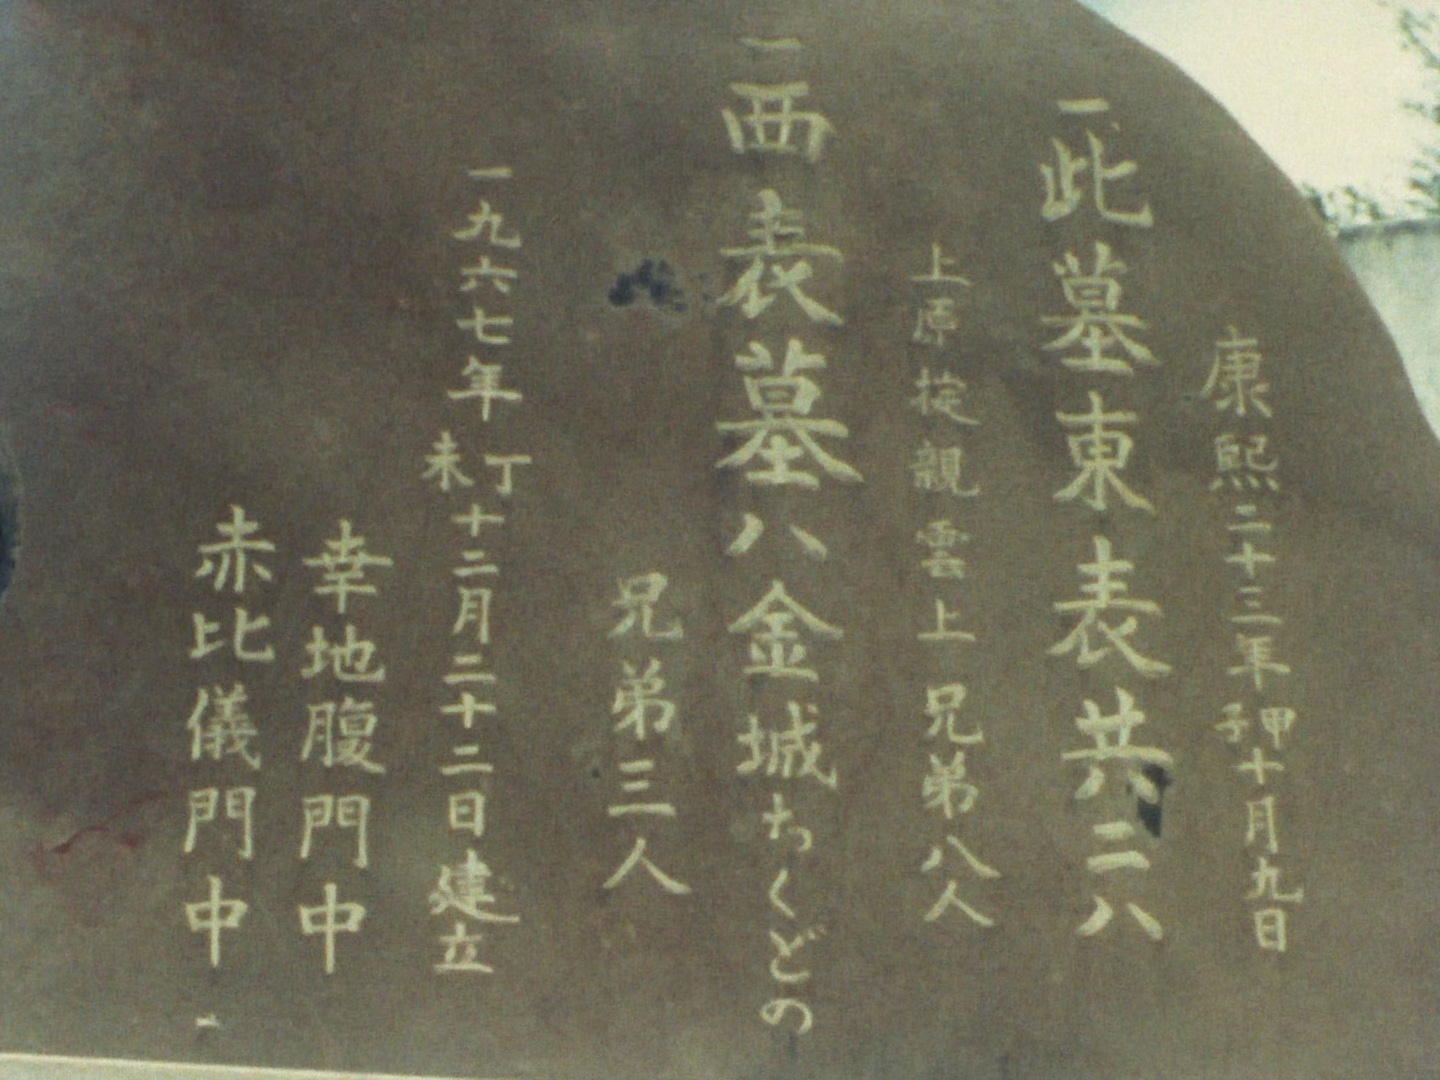 康熙二十三年甲子十月九日
一此墓東表共ニハ
上原掟親雲上兄弟八人
一西表墓ハ金城ちくどの
兄弟三人
一九六七年丁未十二月二十二日建立
幸地腹門中
赤比儀門中